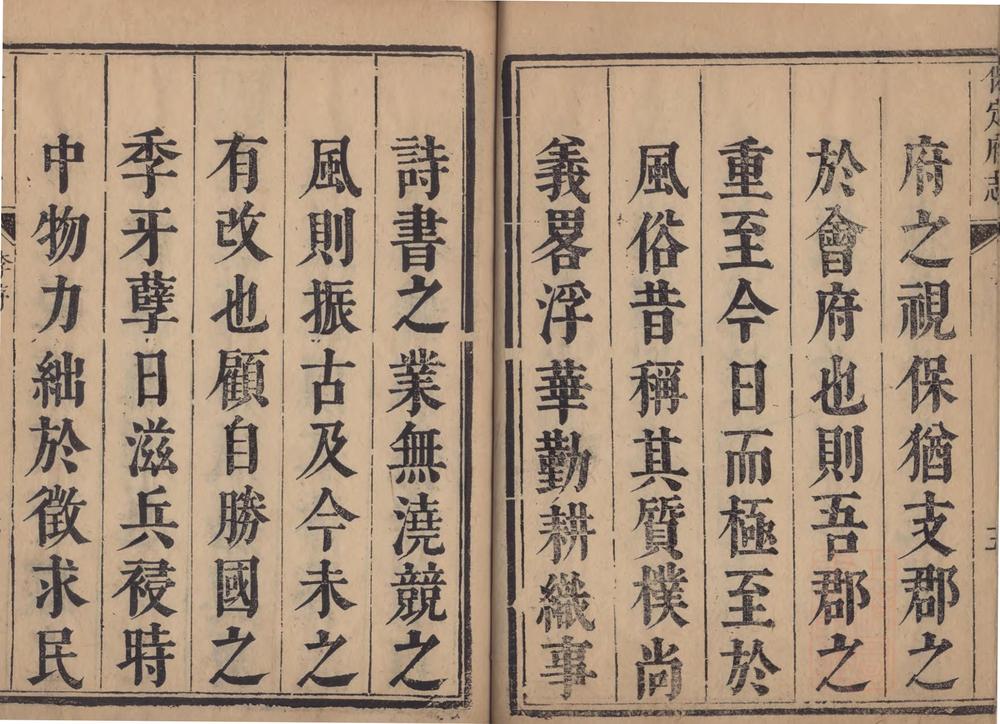 保定府志
府之視保猶支郡之
於會府也則吾郡之
重至今日而極至於
風俗昔稱其質樸尚
義畧浮華勤耕織事
詩書之業無澆競之
風則振古及今未之
有改也顧自勝國之
季牙孽日滋兵祲時
中物力絀於徵求民
李序